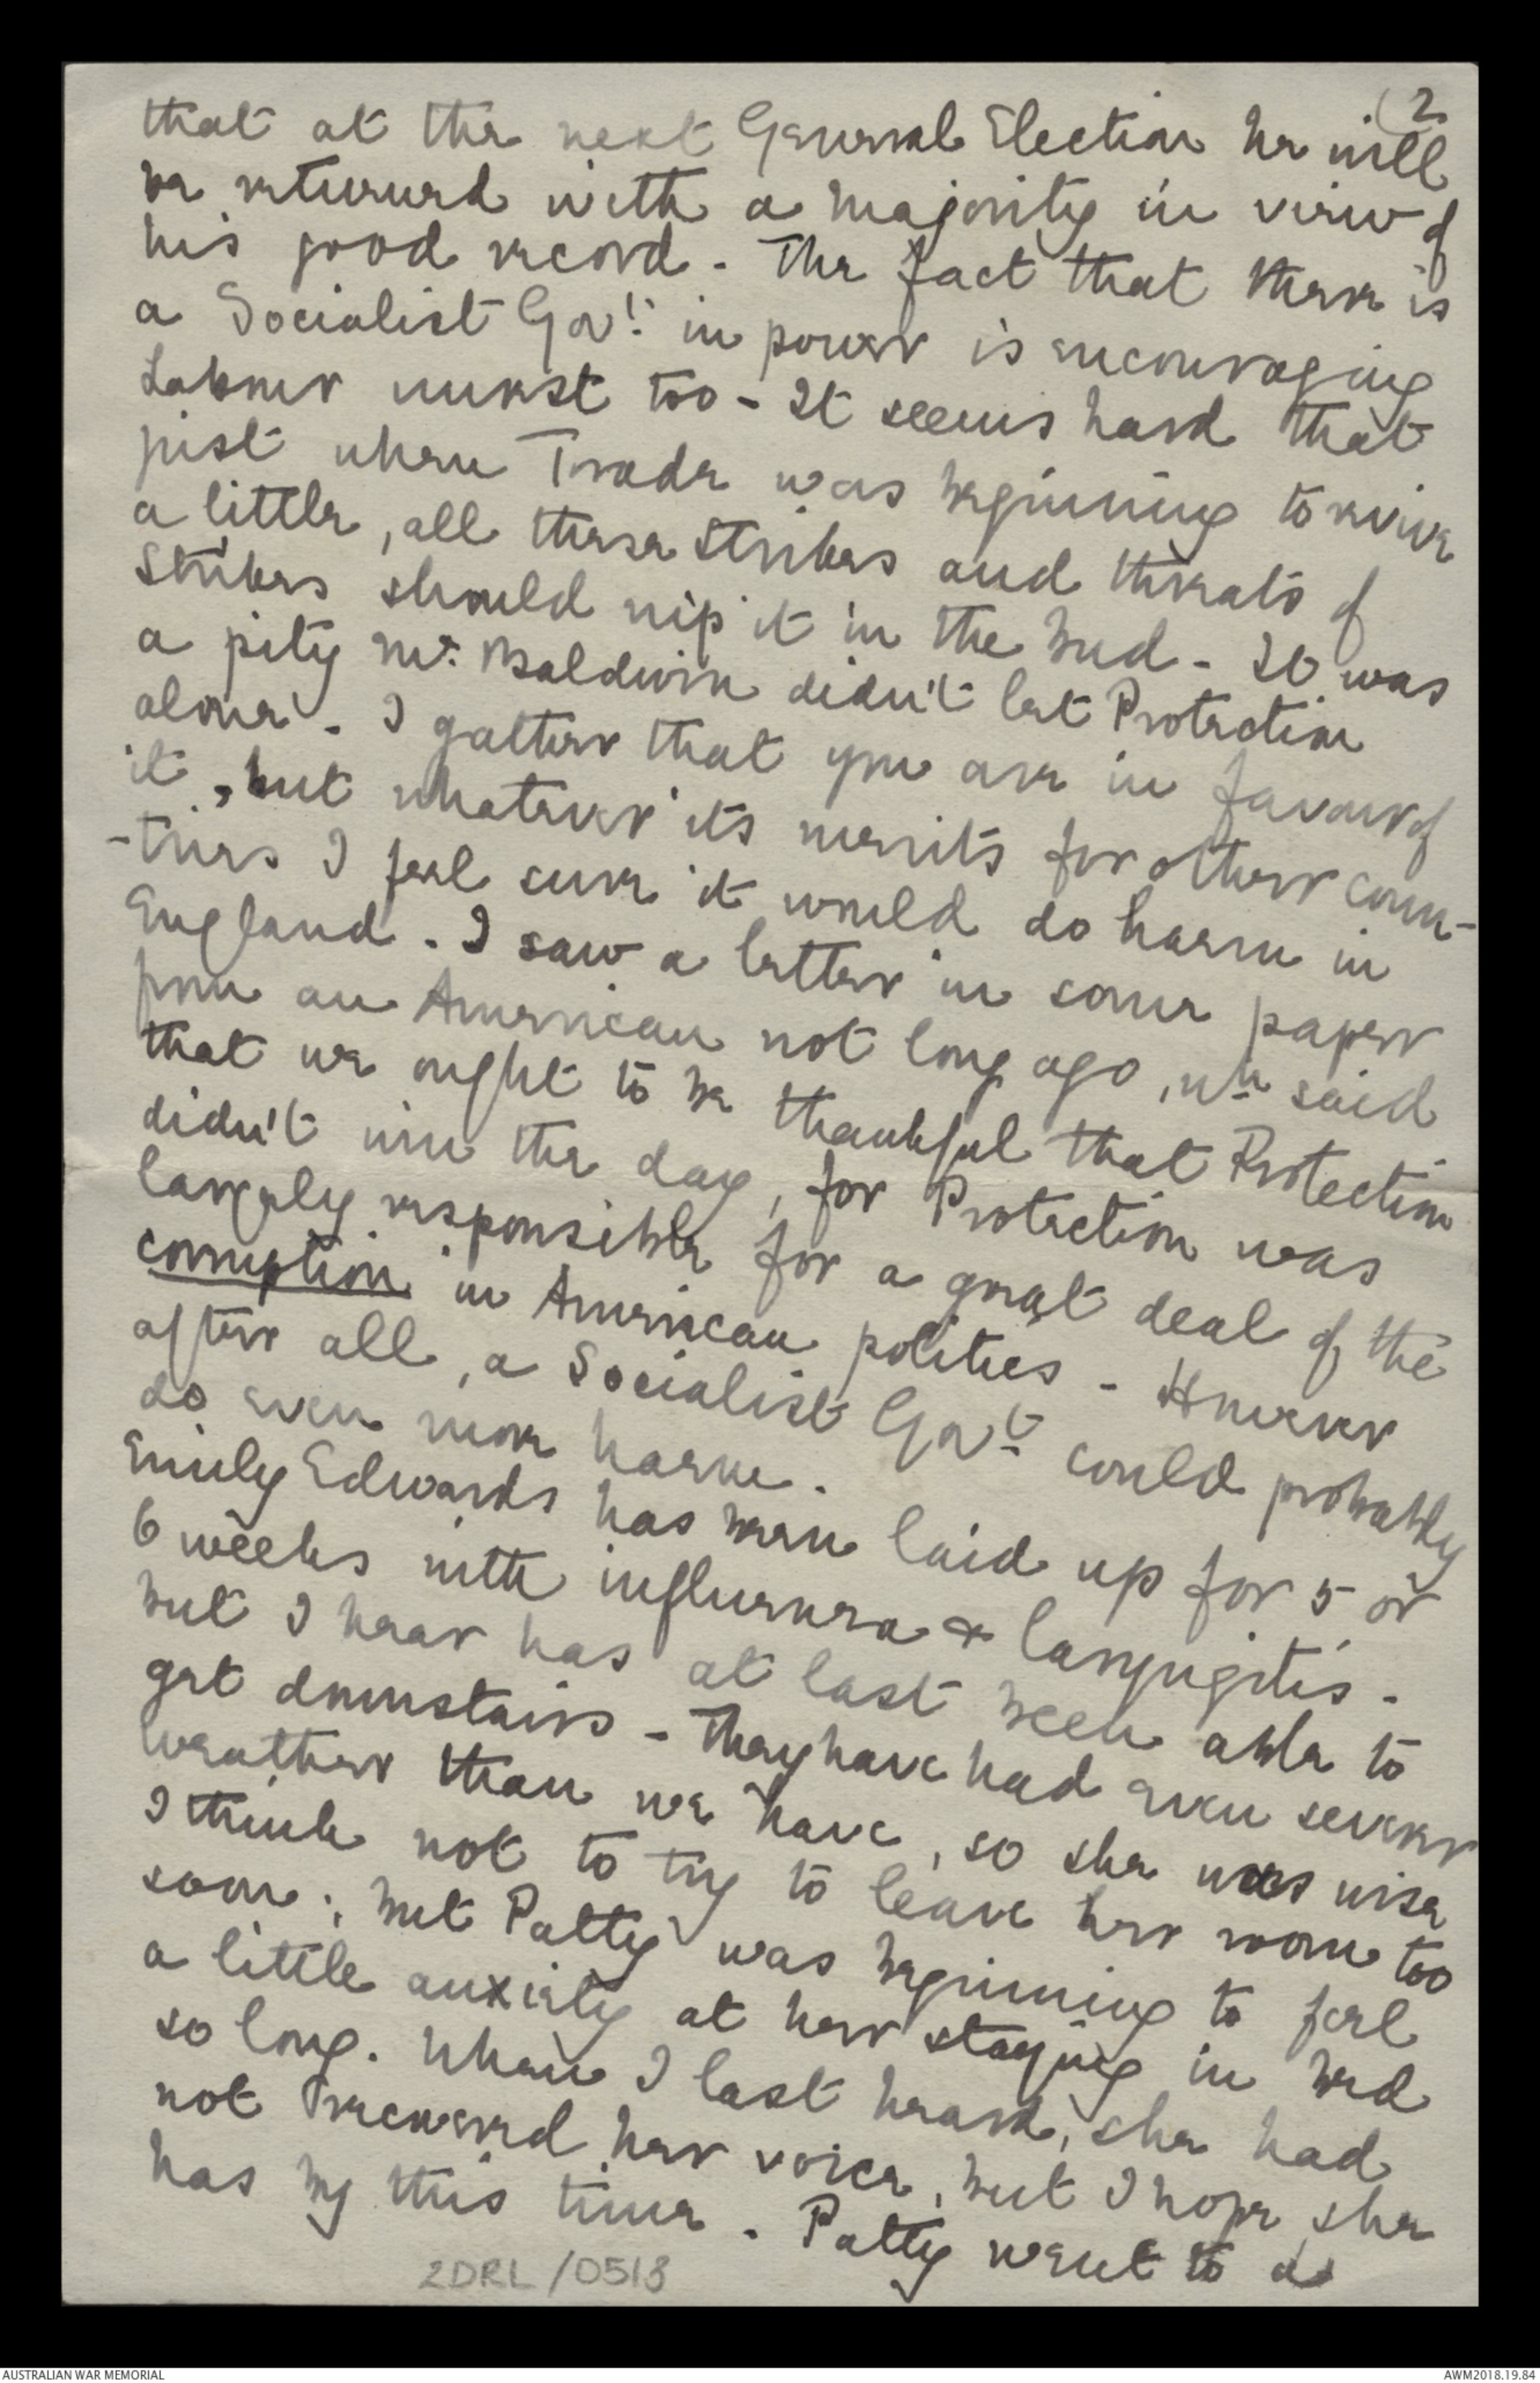 (2
that at the next General Election he will
be returned with a majority in view of
his good record - The fact that there is
a Socialist Govt. in power is encouraging
Labour unrest too - It seems hard that
just when Trade was beginning to revive
a little, all these strikes and threats of
strikes should nip it in the bud - It was
a pity Mr. Baldwin didn't let Protection
alone - I gather that you are in favour of
it, but whatever its merits for other coun-
-tries I feel sure it would do harm in
England. I saw a letter in some paper
from an American not long ago, wh said
that we ought to be thankful that Protection
didn't win the day, for Protection was
largely responsible for a great deal of the
corruption in American politics - However
after all, a Socialist Govt could probably
do even more harm.
Emily Edwards has been laid up for 5 or
6 weeks with influenza & laryngitis -
but I hear has at last been able to
get downstairs - They have had even severer
weather than we have, so she was wise
I think not to try to leave her room too
soon; but Patty was beginning to feel
a little anxiety at her staying in bed
so long. When I last heard, she had
not recovered her voice, but I hope she
has by this time. Patty went to a
2DRL/0513
AUSTRALIAN WAR MEMORIAL
AWM2018.19.84